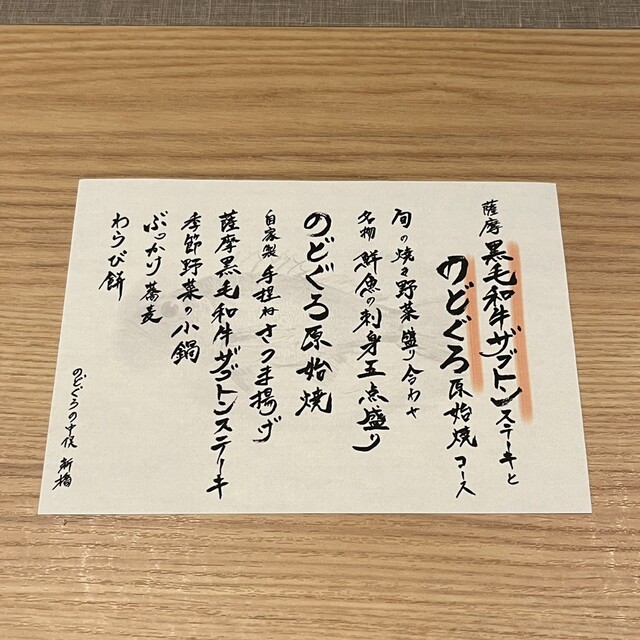 薩摩 黒毛和牛ザブトンステーキと
のどぐろ原始焼コース
旬の焼き野菜盛り合わせ
名物 鮮魚の刺身五点盛り
のどぐろ原始焼
自家製 手捏ねさつま揚げ
薩摩黒毛和牛ザブトンステーキ
季節野菜の小鍋
ぶっかけ蕎麦
わらび餅
のどぐろの中俣 新橋